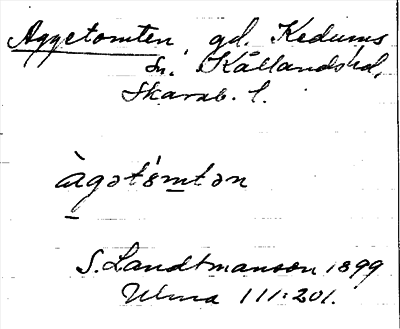 Aggetomten, gd. Kedums
sn. Kållandshd,
Skarab. l.
àgət'ɷmtən
S. Landtmanson 1899
Ulma 111:201.